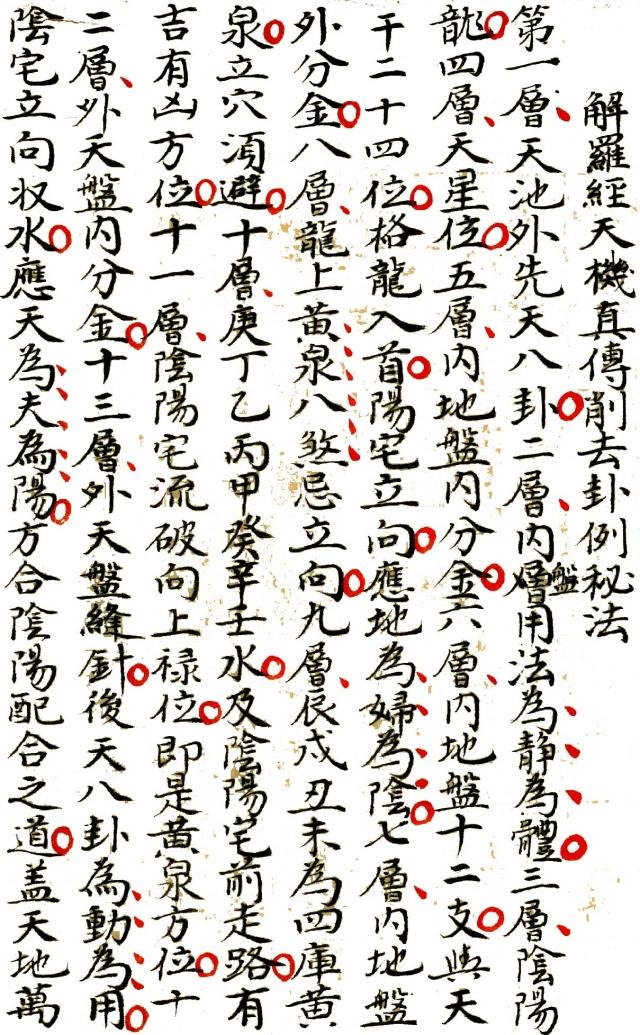 解羅經天機真傳削去卦例秘法
第一層天池外先天八卦二層内層盤用法為静為體三層陰陽
龍四層天星位五層内地盤内分金六層内地盤十二支與天
干二十四位格龍入首陽宅立向應地為婦為陰七層内地盤
外分金八層龍上黄泉八煞忌立向九層辰戍丑未為四庫黄
泉立穴須避十層庚丁乙丙甲癸辛壬水及陰陽宅前走路有
吉有凶方位十一層陰陽宅流破向上禄位即是黄泉方位十
二層外天盤内分金十三層外天盤縫針後天八卦為動為用
陰宅立向收水應天為夫為陽方合陰陽配合之道盖天地萬